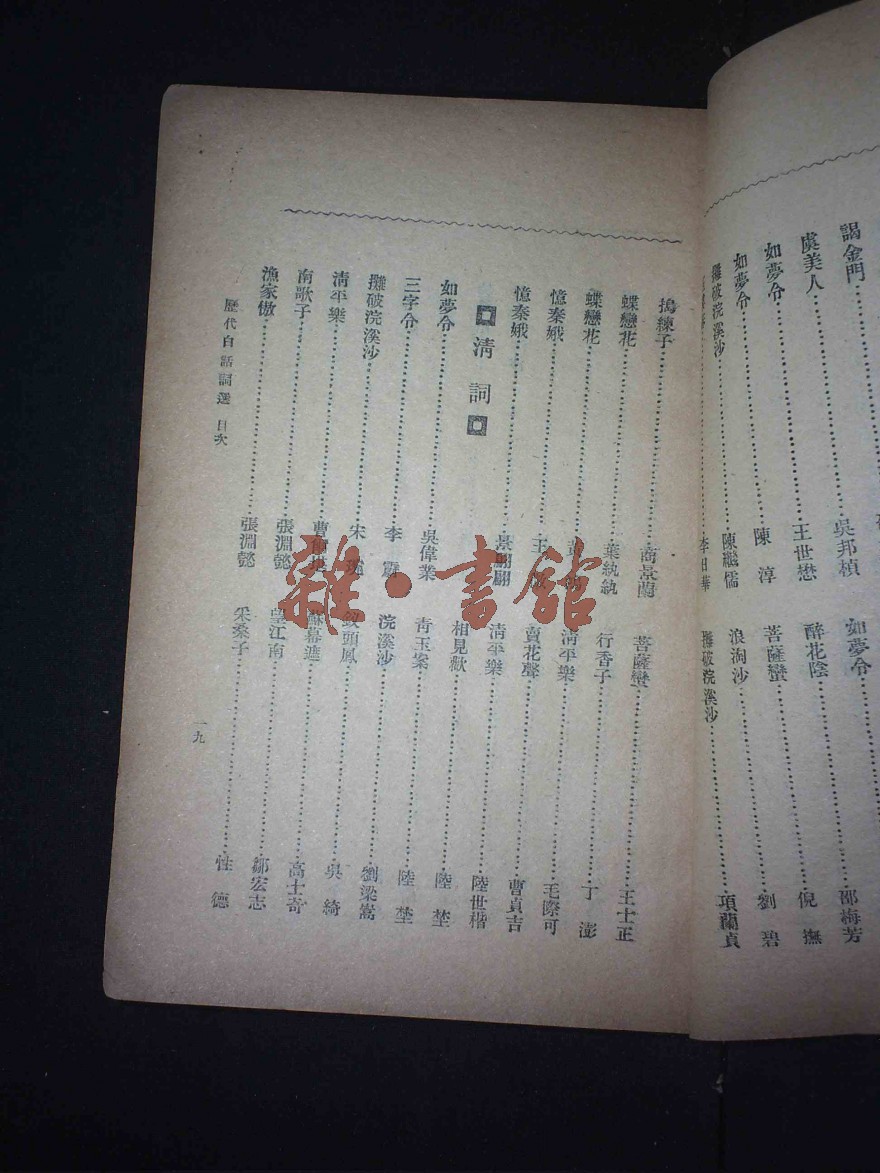 謁金門……吳邦楨
虞美人……王世懋
如夢令……陳淳
如夢令……陳繼儒
攤破浣溪沙……李日華
如夢令……邵梅芳
醉花陰……倪撫
菩薩蠻……劉碧
浪淘沙……項蘭貞
攤破浣溪沙……
搗練子……商景蘭
蝶戀花……葉紈紈
蝶戀花……
憶秦娥……王
憶秦娥……景翩翩
清詞
如夢令……吳偉業
三字令……李霨
攤破浣溪沙……宋琬
清平樂……曹 堪
南歌子……張淵懿
漁家傲……張淵懿
菩薩蠻……王士正
行香子……丁澎
清平樂……毛際可
賣花聲……曹貞吉
清平樂……陸世楷
相見歡……陸埜
青玉案……陸埜
浣溪沙……劉梁嵩
釵頭鳳……吳綺
蘇幕遮……高士奇
望江南……鄒宏志
采桑子……性德
歷代白話詞選 目次
一九
雜·書館